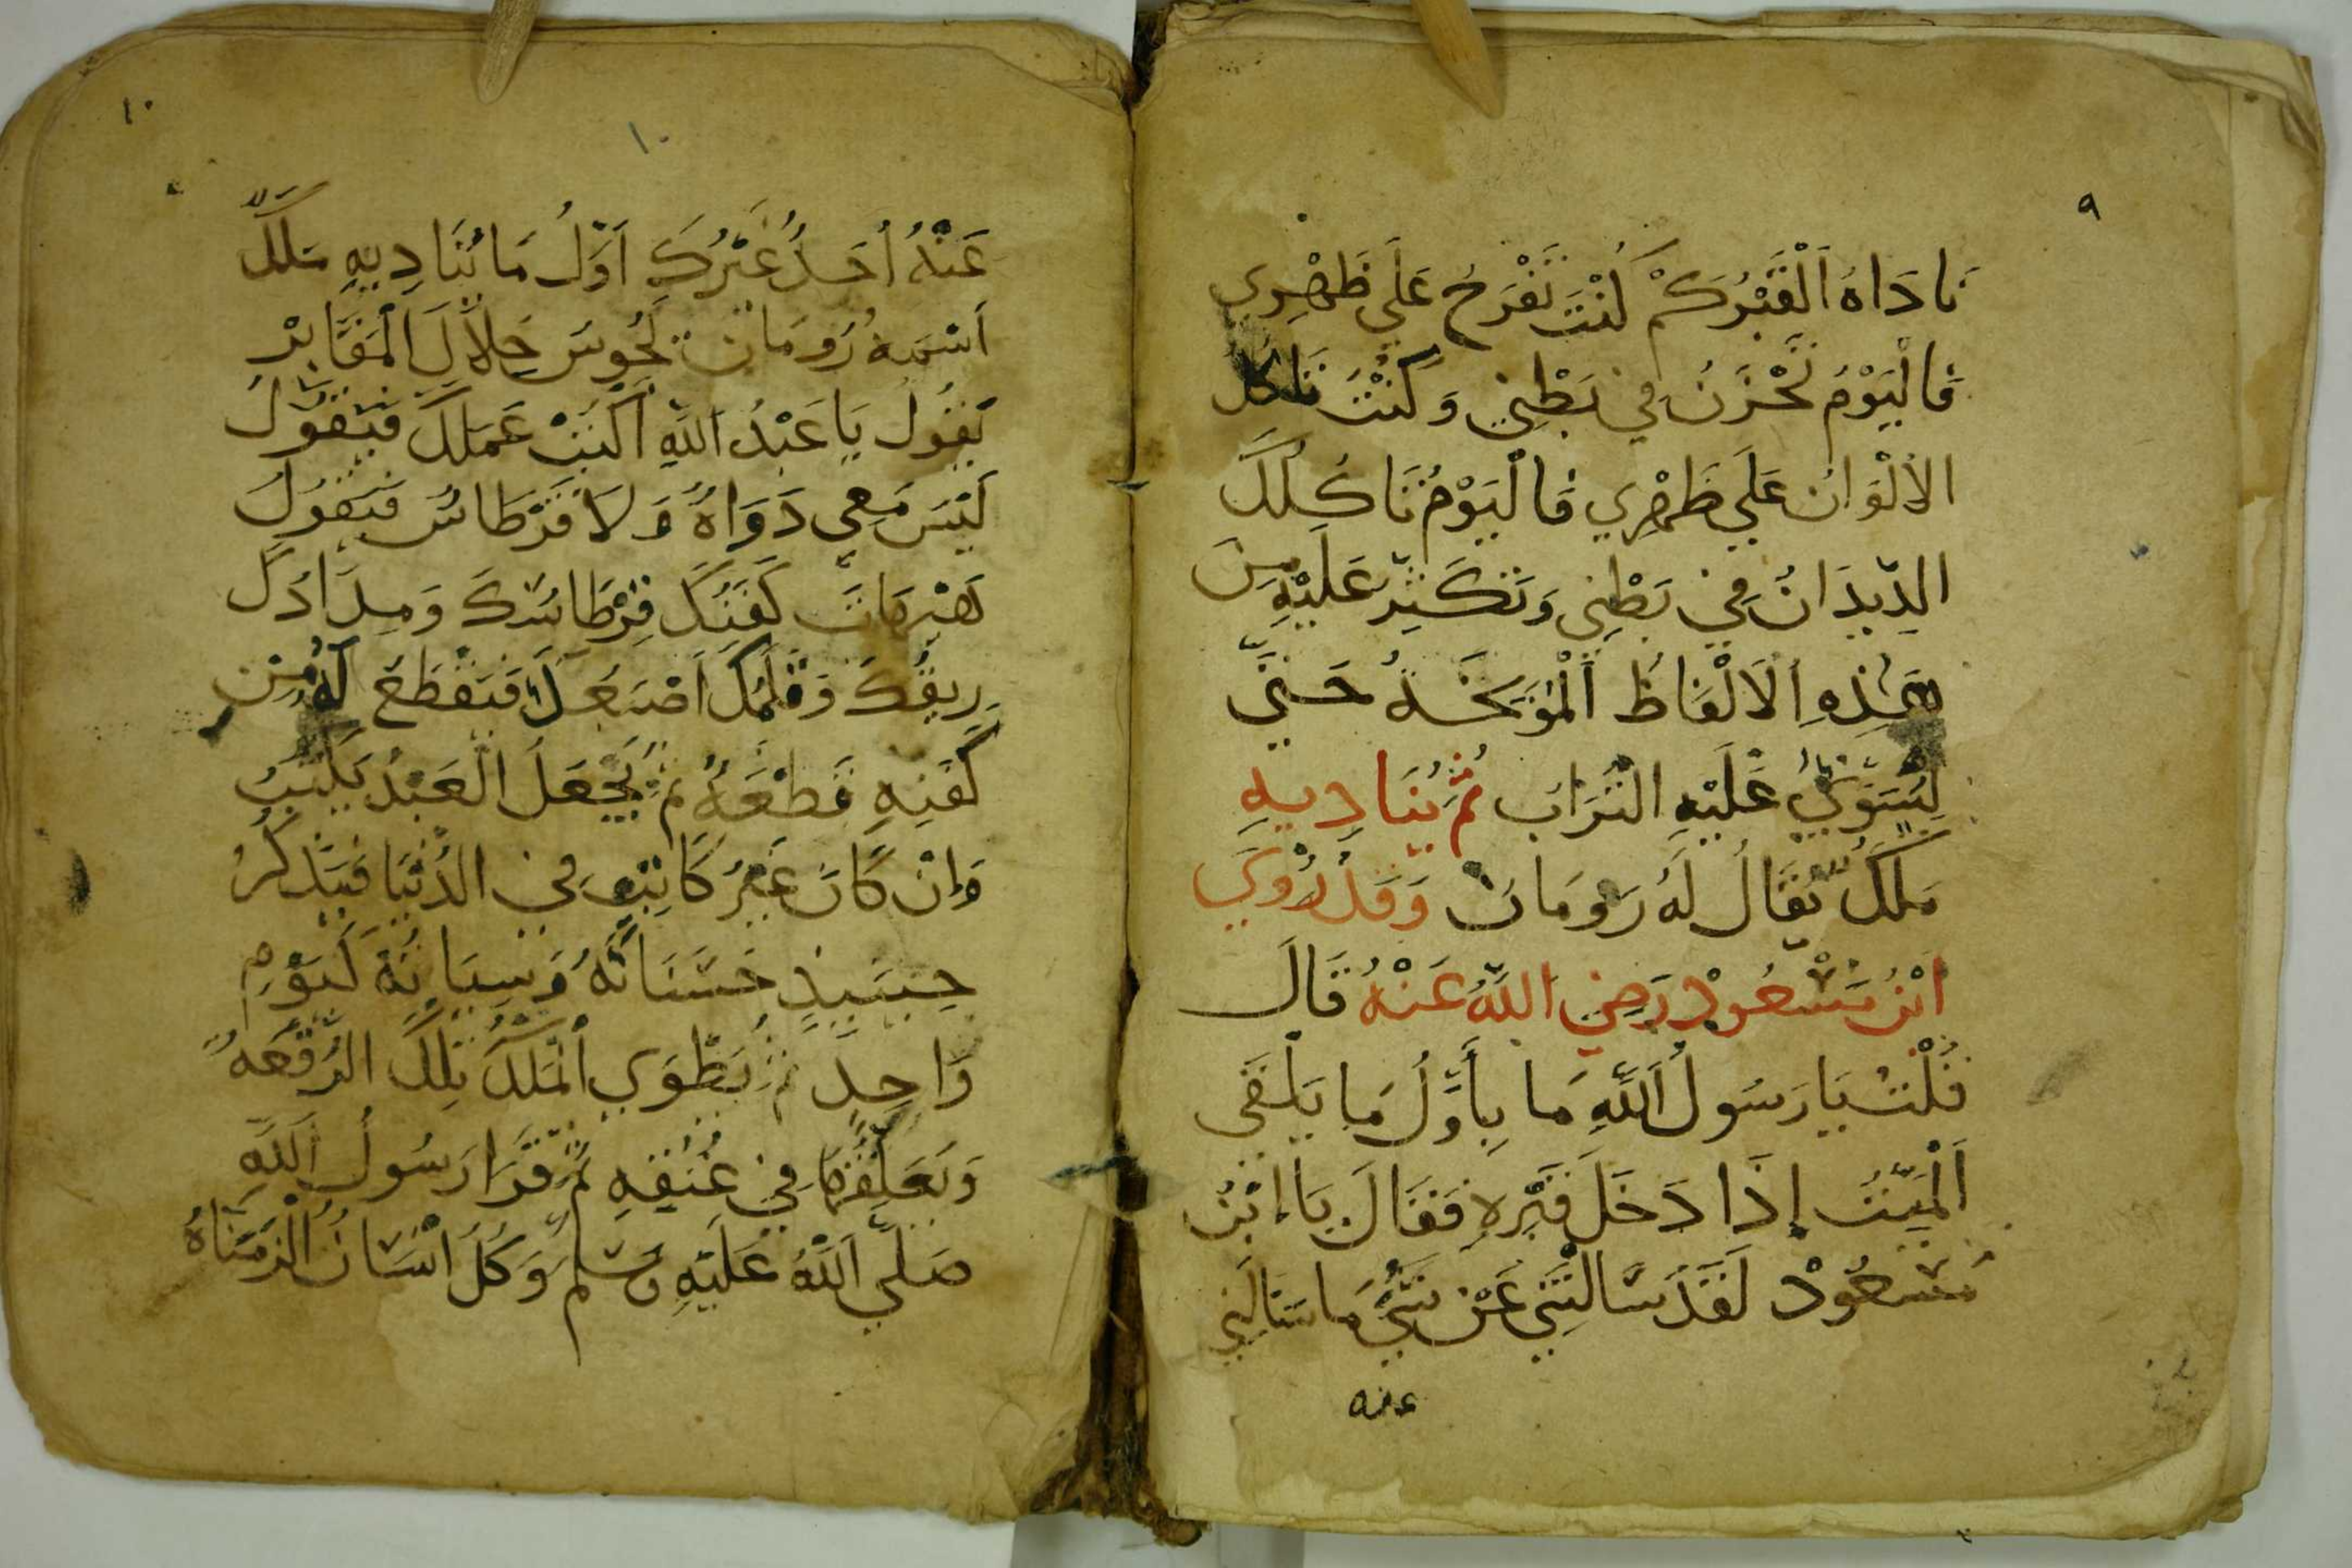 ٩
نَادَاهُ اَلْقَبْرُ كَمْ كُنْتَ تَفْرَحُ عَلَي ظَهْرِي
فَالْيَوْمُ تَحْزَنُ فِي بَطْنِي وَكُنْتَ تَاكُلُ
الأَلْوَانُ عَلَي ظَهْرِي فَالْيَوْمُ تَاكُلَكَ
الدِّيدَانُ فِي بَطْنِي وَتَكْثِيرُ عَلَيْهِ مِنَ
هَذِهِ اِلَالْفَاظُ اَلْمُوَبِّخَهُ حَتَّي
يَسْتَوِيُ عَلَيْهِ التُرَابُ ثُمَّ يُنَادِيهِ
مَلَكٌ يُقَالُ لَهُ رَومَانْ وَقَدْ رُوِيَ
ابْنُ مَسْعُودْ رَضِيَ اللَّهُ عَنْهُ قَالَ
قُلْتُ يَا رَسُولُ اَللَّهِ مَا بِأَوَّلُ مَا يَلْقَى
اَلْمَيِّتُ إِذَا دَخَلَ قَبْرِهِ فَقَالَ يَا إبْنُ
مَسْعُودْ لَقَدْ سَالْتَنِي عَنْ شَيْءٍ مَا سَالَنِي
عنه
١٠
١٠
عَنْهُ اُحَدُ غَيْرُكَ اَوَّلُ مَا يُنَادِيهِ مَلَكٌ
اَسْمهُ رُومَان يَجُوسَ خِلاَلَ الْمَقَابِرْ
يَقُولُ يَا عَبْدُ اللَّهِ اُكْتُبْ عَمَلَكَ فَيَقُولُ
لَيْسَ مَعِي دَوَاهٌ وَلاَ قَرْطَاسٌ فَيَقُولُ
هَيْهَاتَ كَفَنُكَ قِرْطَاسُكَ وَمِدَادُكَ
رِيقُكَ وَقَلَمُكَ اَصْبَعَكَ فَيَقْطَعَ لَهُ مِنْ
كَفَنِهِ قَطْعَهٌ ثُمَّ يَجْعَلَ الْعَبْدُ يَكْتُبُ
وَإِنْ كَانَ غَيْرُ كَاتِبٍ فِي الدُنْيَا فَيَذْكُرُ
حِينَيِذٍ حَسَنَاتَهُ وَسِيَاتِهَ كَيَوْمِ
وَاحِدٍ ثُمَّ يَطْوَي اَلْمَلَكُ تِلْكَ الرُقْعَهُ
وَيَعَلِقُهَا فِي عُنُقِهِ ثُمَّ قَرَا رَسُولُ اَللَّهِ
صَلَّي اَللَّهُ عَلَيْهِ وَسَلَّمَ وَكُلُ اَنْسَانُ الْزَمْنَاهُ